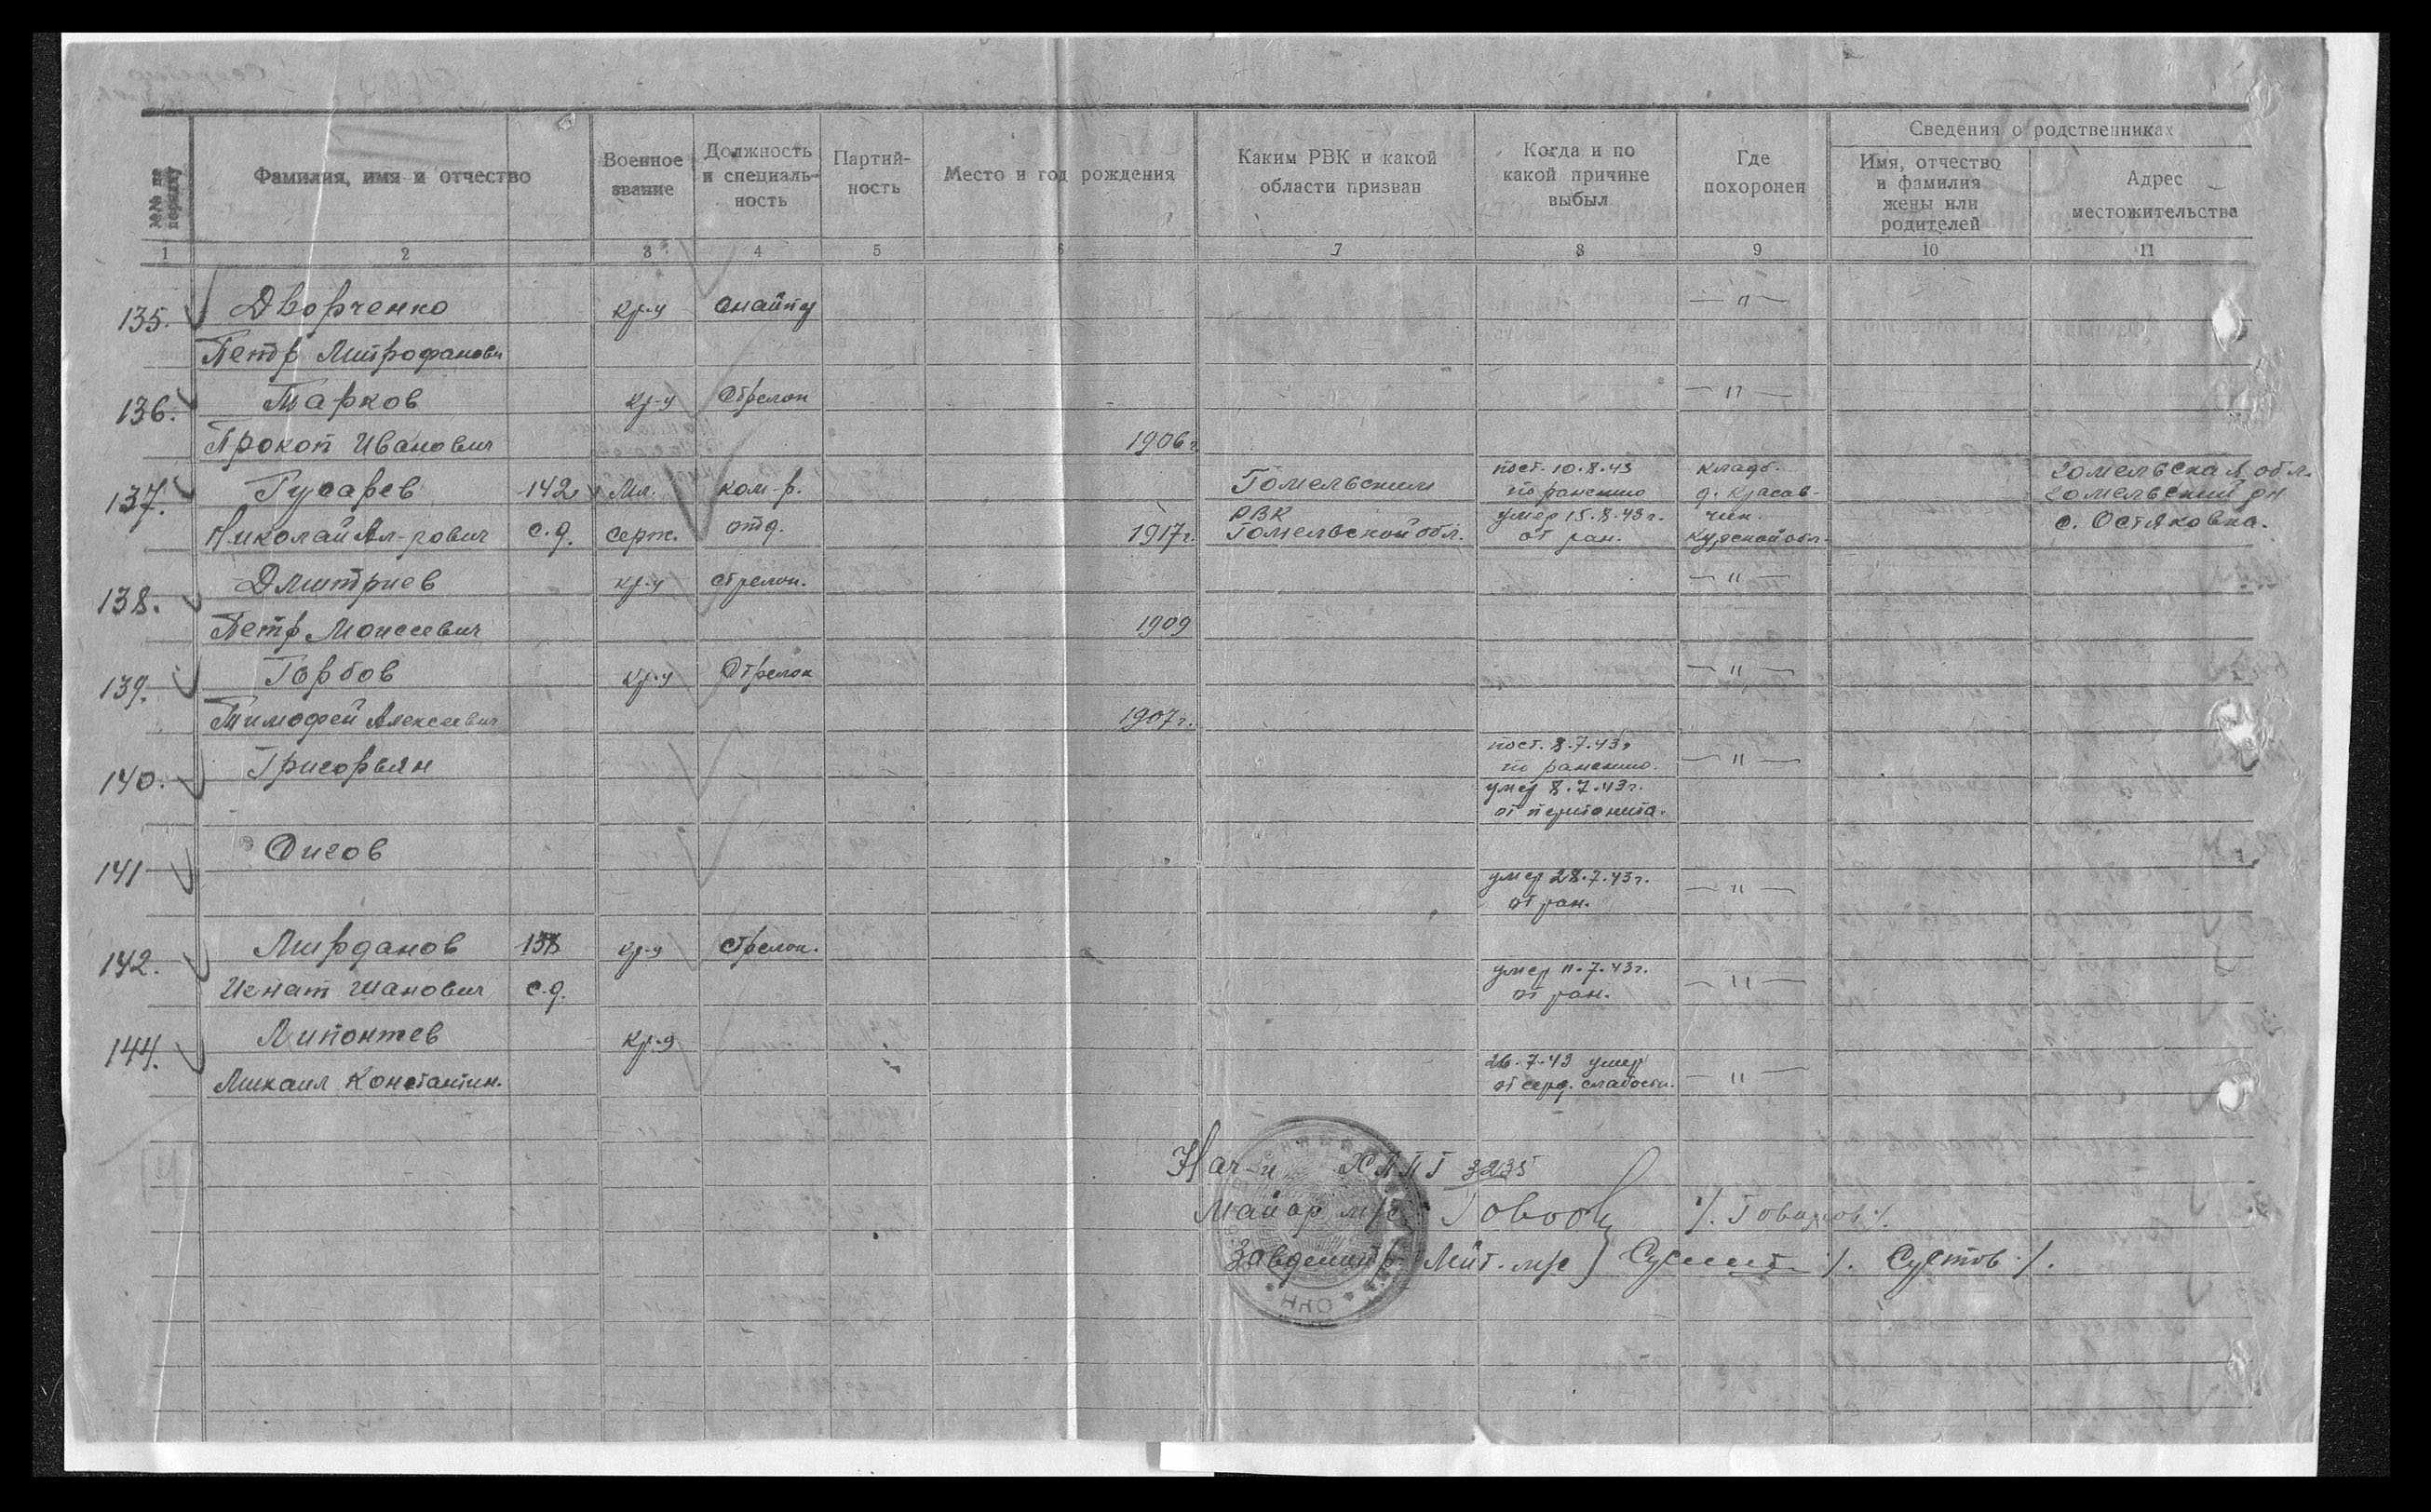 №№ по порядку
Фамилия, имя и отчество
Военное звание
Должность и специаль-ность
Партий-ность
Место и год рождения
Каким РВК и какой области призван
Когда и по какой причине выбыл
Где похоронен
Сведения о родственниках
Имя, отчество и фамилия жены или родителей
Адрес местожительства
1 2 3 4 5 6 7 8 9 10 11
135. Дворченко кр-ц снайпр — " —
Петр Митрофанович
136. Тарков кр-ц Стрелок — " —
Прокоп Иванович 1906 г
137. Гусарев 142 Мл. ком-р. Гомельским пост. 10.8.43 кладб. Гомельская обл.
по ранению д. Красав- Гомельский рн
Николай Ал-рович с.д. серж. отд. 1917 г. РВК умер 15.8.43 г. чик. с. Остяковка.
Гомельской обл. от ран. Курской обл.
138. Дмитриев кр-ц стрелок. — " —
Петр Моисеевич 1909
139. Горбов кр-ц Стрелок — " —
Тимофей Алексеевич 1907 г.
140. Григорьян пост. 8.7.43г — " —
по ранению.
умер 8.7.43 г.
от перитонита.
141 Дигов
умер 28.7.43 г. — " —
от ран.
142. Мирданов 138 кр-ц стрелок.
умер 11.7.43 г. — " —
Игнат Иванович с.д. от ран.
144. Липонтев кр-ц
26.7.43 умер
Михаил Константин. от серд. слабости. — " —
Нач-к ХППГ 3235
Майор м/с /. Говоров /.
Завделопр. Лейт. м/с /. Сустов /.
НКО